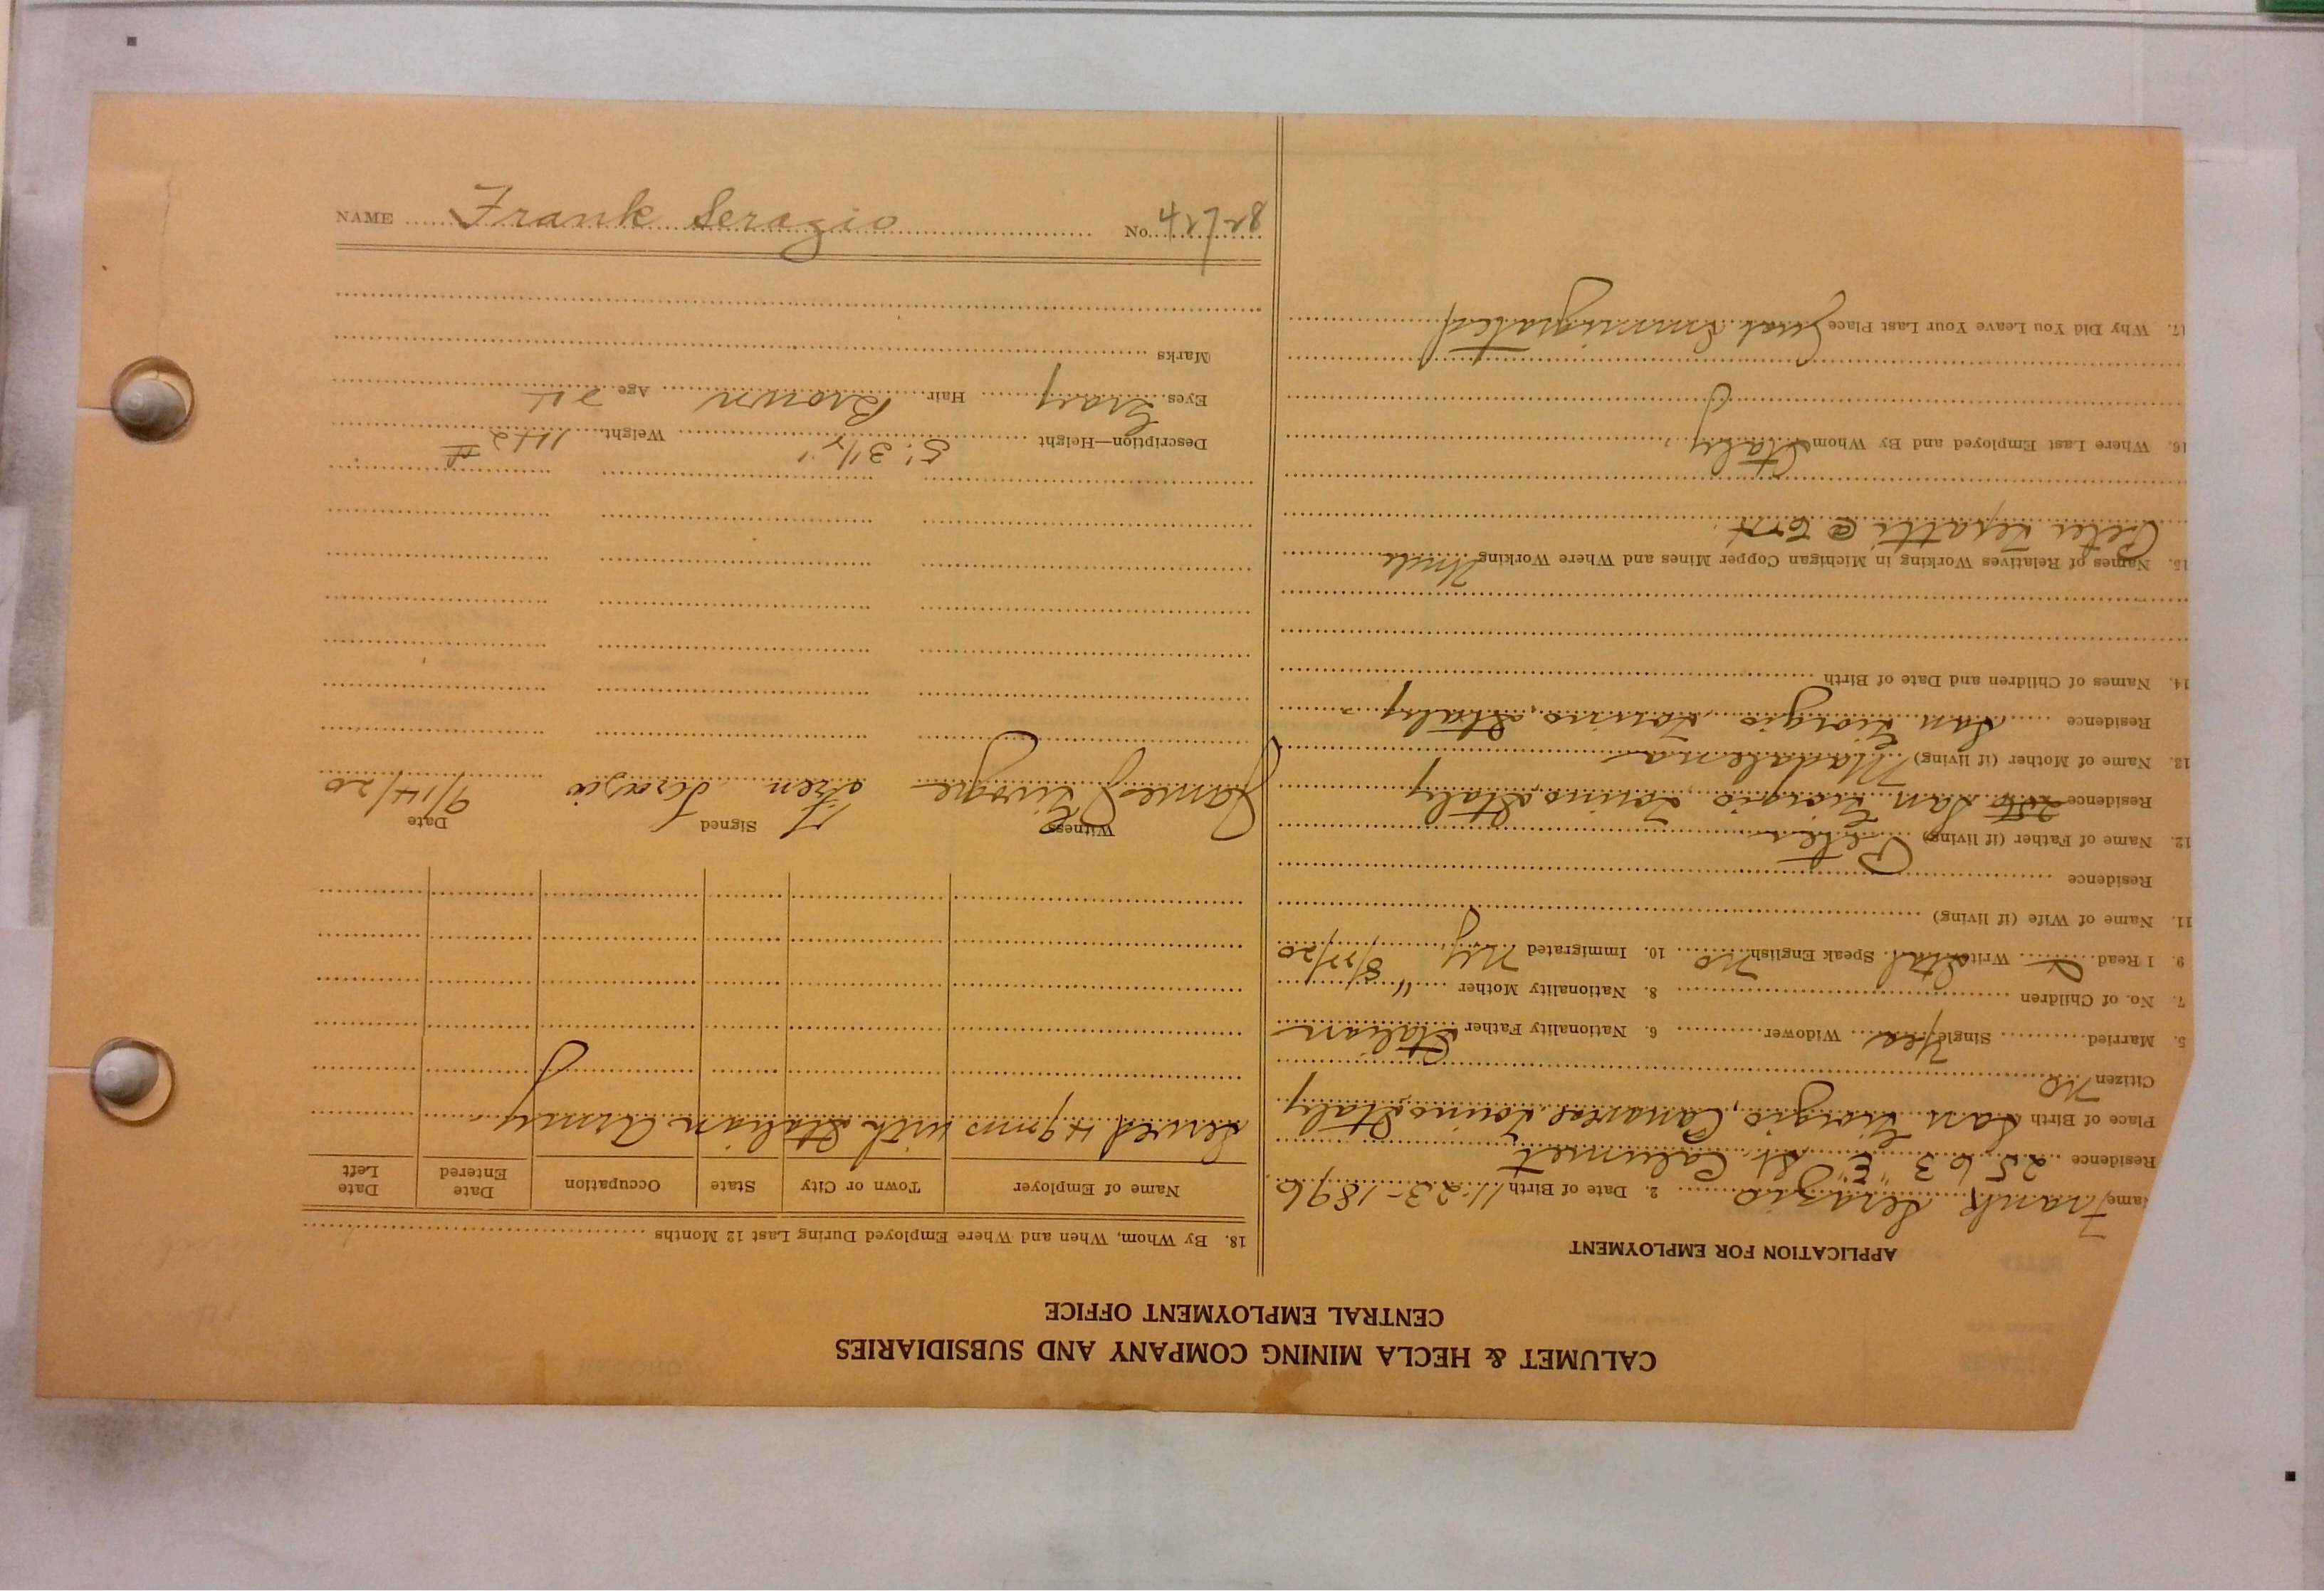 CALUMET & HECLA MINING COMPANY AND SUBSIDIARIES
CENTRAL EMPLOYMENT OFFICE
APPLICATION FOR EMPLOYMENT
Name Frank Serazio 2. Date of Birth 11-23-1896
Residence 2563 "E" St. Calumet
Place of Birth San Giorgio, Canavese Torino Italy
Citizen No
5. Married Single Yes Widower 6. Nationality Father Italian
7. No. of Children 8. Nationality Mother "
9. I Read Write Ital Speak English No 10. Immigrated NY 8/27/20
11. Name of Wife (if living)
Residence
12. Name of Father (if living) Peter
Residence San Giorgio, Torino, Italy
13. Name of Mother (if living) Madalena
Residence San Giorgio, Torino, Italy
14. Names of Children and Date of Birth
15. Names of Relatives Working in Michigan Copper Mines and Where Working Uncle
Peter @
16. Where Last Employed and By Whom Italy
17. Why Did You Leave Your Last Place Just Immigrated
18. By Whom, When and Where Employed During Last 12 Months
Name of Employer Town or City State Occupation Date Entered Date Left
Served 49 mos with Italian Army
Witness Signed Date
James Serazio 9/14/20
Description—Height 5' 3½" Weight 142 #
Eyes Gray Hair Brown Age 24
Marks
NAME Frank Serazio No. 42728